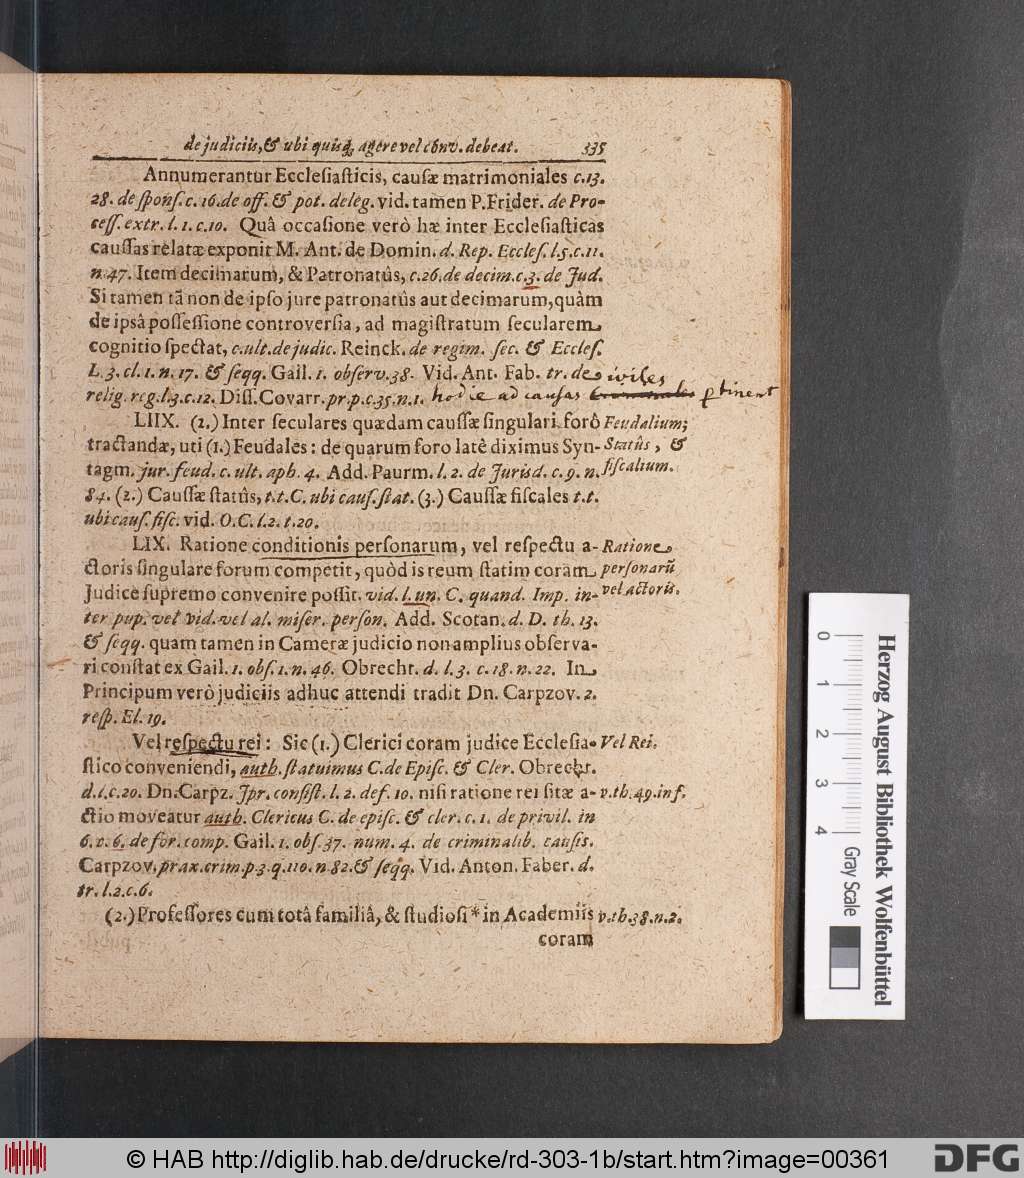 de judiciis, & ubi quisq; agere vel conv. debeat. 335
Annumerantur Ecclesiasticis, causæ matrimoniales c.13.
28. de spons. c.16. de off. & pot. deleg. vid. tamen P. Frider. de Pro-
cess. extr. l. 1. c. 10. Quâ occasione verò hæ inter Ecclesiasticas
caussas relatæ exponit M. Ant. de Domin. d. Rep. Eccles. l.5. c.11.
n.47. Item decimarum, & Patronatûs, c.26. de decim. c.3. de Jud.
Si tamen tā non de ipso jure patronatûs aut decimarum, quàm
de ipsâ possessione controversia, ad magistratum secularem
cognitio spectat, c. ult. de judic. Reinck. de regim. sec. & Eccles.
L. 3. cl. 1. n. 17. & seqq. Gail. 1. observ. 38. Vid. Ant. Fab. tr. de
civiles
relig. reg. l.3. c.12. Diss. Covarr. pr. p. c. 35. n. 1. hodie ad causas pertinent
LIIX. (2.) Inter seculares quædam caussæ singulari forô
Feudalium;
tractandæ, uti (1.) Feudales: de quarum foro latè diximus Syn-
Statûs, &
tagm. jur. feud. c. ult. aph. 4. Add. Paurm. l. 2. de Jurisd. c. 9. n.
fiscalium.
84. (2.) Caussæ statûs, t.t. C. ubi caus. stat. (3.) Caussæ fiscales t.t.
ubi caus. fisc. vid. O.C. l.2. t.20.
LIX. Ratione conditionis personarum, vel respectu a-
Ratione
ctoris singulare forum competit, quòd is reum statim coram
personarū
Judice supremo convenire possit. vid. l. un. C. quand. Imp. in-
vel actoris.
ter pup. vel vid. vel al. miser. person. Add. Scotan. d. D. th. 13.
& seqq. quam tamen in Cameræ judicio non amplius observa-
ri constat ex Gail. 1. obs. 1. n. 46. Obrecht. d. l. 3. c. 18. n. 22. In
Principum verò judiciis adhuc attendi tradit Dn. Carpzov. 2.
resp. El. 19.
Vel respectu rei: Sic (1.) Clerici coram judice Ecclesia-
Vel Rei.
stico conveniendi, auth. statuimus C. de Episc. & Cler. Obrecht.
d. l. c. 20. Dn. Carpz. Jpr. consist. l. 2. def. 10. nisi ratione rei sitæ a-
v. th. 49. inf.
ctio moveatur auth. Clericus C. de episc. & cler. c. 1. de privil. in
6. v. 6. de for. comp. Gail. 1. obs. 37. num. 4. de criminalib. causis.
Carpzov. prax. crim. p.3. q. 110. n. 82. & seqq. Vid. Anton. Faber. d.
tr. l. 2. c. 6.
(2.) Professores cum totâ familiâ, & studiosi * in Academiis
v. th. 38. n. 2.
coram
0 1 2 3 4
Herzog August Bibliothek Wolfenbüttel
Gray Scale
© HAB http://diglib.hab.de/drucke/rd-303-1b/start.htm?image=00361
DFG